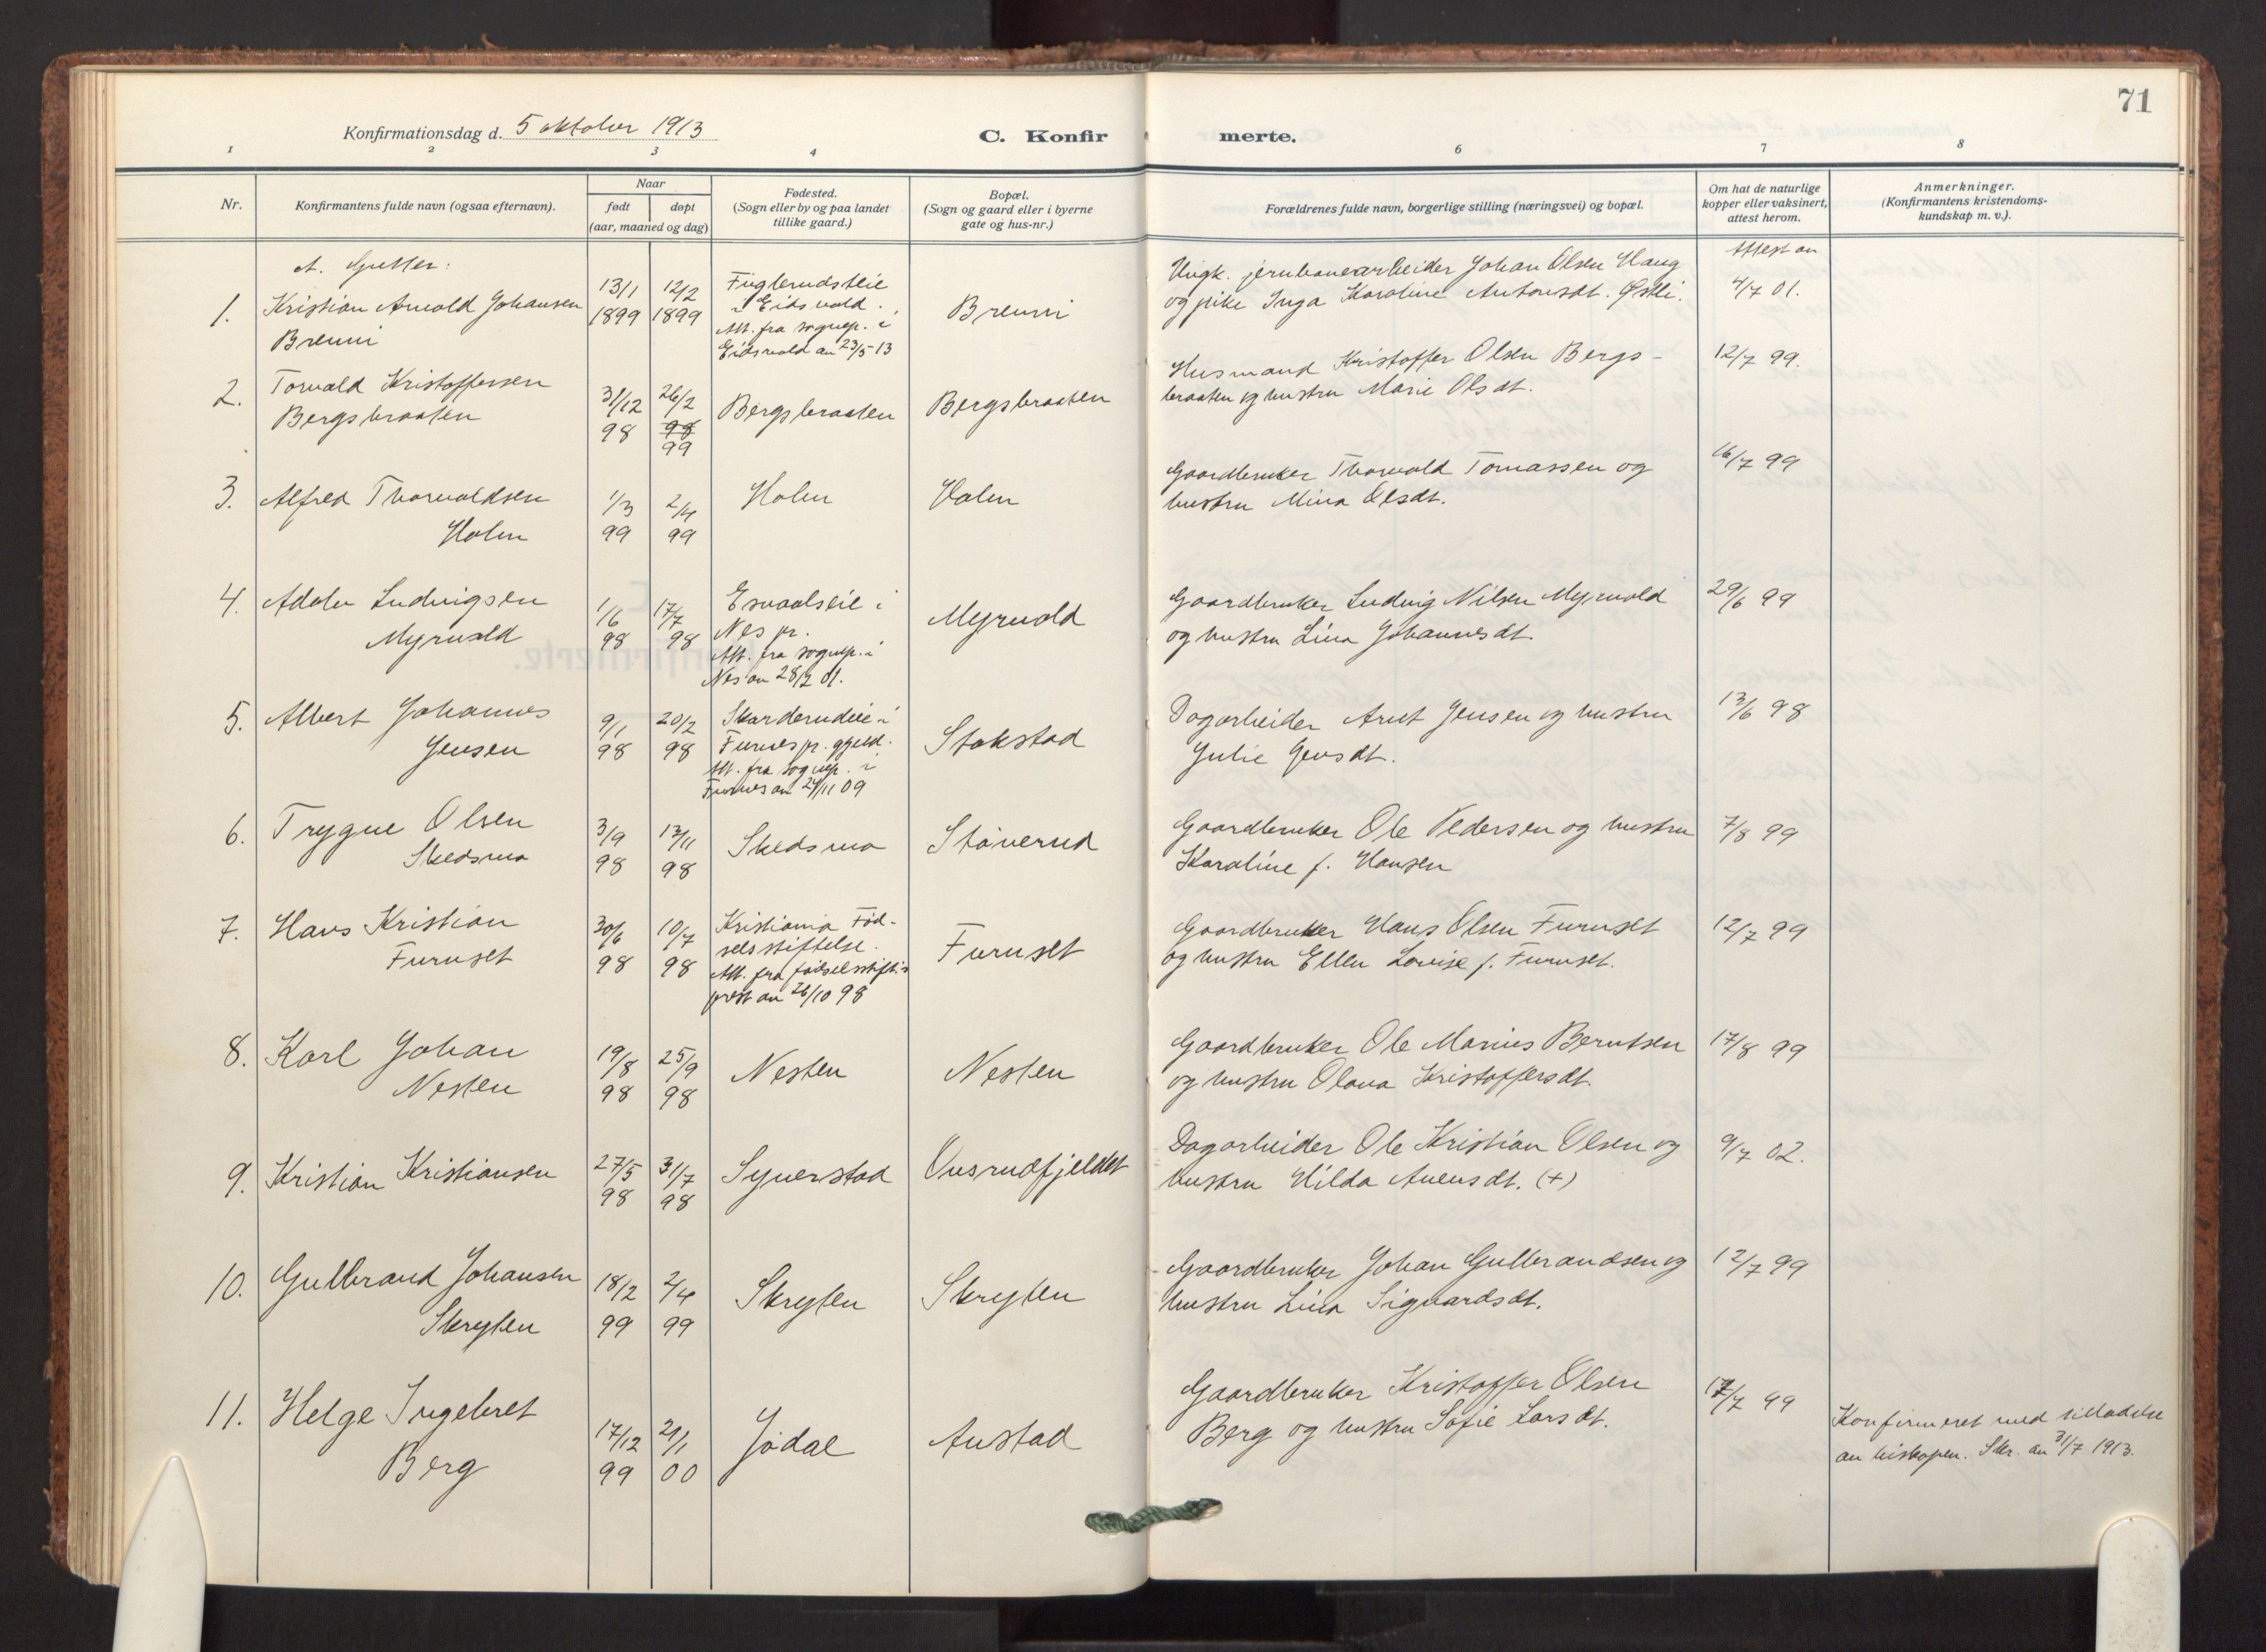 71
Konfirmationsdag d. 5 oktober 1913
C. Konfirmerte.
1 2 3 4 6 7 8
Nr.
Konfirmantens fulde navn (ogsaa efternavn).
Naar
født døpt
(aar, maaned og dag)
Fødested.
(Sogn eller by og paa landet
tillike gaard.)
Bopæl.
(Sogn og gaard eller i byerne
gate og hus-nr.)
Forældrenes fulde navn, borgerlige stilling (næringsvei) og bopæl.
Om hat de naturlige
kopper eller vaksinert,
attest herom.
Anmerkninger.
(Konfirmantens kristendoms-
kundskap m. v.).
A. Gutter:
1. Kristian Arnold Johansen
Brenni
13/1
1899
12/2
1899
Fuglerudseie
i Eidsvold.
Att. fra sognep. i
Eidsvold av 23/5 13
Brenni
Ungk. jernbanearbeider Johan Olsen Haug
og pike Inga Karoline Antonsdt. Østli.
Attest av
4/7 01.
2. Torvald Kristoffersen
Bergsbraaten
31/12
98
26/2
98
99
Bergsbraaten
Bergsbraaten
Husmand Kristoffer Olsen Bergs-
braaten og hustru Marie Olsdt.
12/7 99.
3. Alfred Thorvaldsen
Holen
1/3
99
2/4
99
Holen
Holen
Gaardbruker Thorvald Tomassen og
hustru Mina Olsdt.
16/7 99
4. Adolv Ludvigsen
Myrvold
1/6
98
17/7
98
Esvaalseie i
Nes pr.
Att. fra sognep. i
Nes av 28/2 01.
Myrvold
Gaardbruker Ludvig Nilsen Myrvold
og hustru Lina Johannesdt.
29/6 99
5. Albert Johannes
Jensen
9/1
98
20/2
98
Skarderudeie i
Furnes pr.gjeld.
Att. fra sognep. i
Furnes av 24/11 09
Stokstad
Dagarbeider Arnt Jensen og hustru
Julie Jensdt.
13/6 98
6. Trygve Olsen
Skedsmo
3/9
98
13/11
98
Skedsmo
Støverud
Gaardbruker Ole Pedersen og hustru
Karoline f. Hansen
7/8 99
7. Hans Kristian
Furuset
30/6
98
10/7
98
Kristiania Fød-
selsstiftelse.
Att. fra fødselsstift.s
prest av 26/10 98
Furuset
Gaardbruker Hans Olsen Furuset
og hustru Ellen Lovise f. Furuset.
12/7 99
8. Karl Johan
Nesten
19/8
98
25/9
98
Nesten
Nesten
Gaardbruker Ole Marius Berntsen
og hustru Olava Kristoffersdt.
17/8 99
9. Kristian Kristiansen
27/5
98
31/7
98
Syverstad
Ousrudfjeldet
Dagarbeider Ole Kristian Olsen og
hustru Hilda Auensdt. (+)
9/7 02.
10. Gulbrand Johansen
Skryten
18/2
99
2/4
99
Skryten
Skryten
Gaardbruker Johan Gulbrandsen og
hustru Lina Sigvardsdt.
12/7 99
11. Helge Ingebret
Berg
17/12
99
21/1
00
Jødal
Austad
Gaardbruker Kristoffer Olsen
Berg og hustru Sofie Larsdt.
17/7 99
Konfirmeret med tilladelse
av biskopen. Skr. av 31/7 1913.